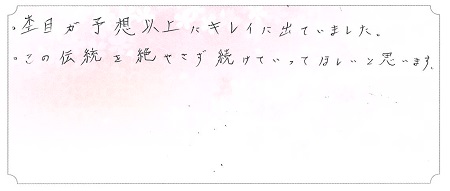 ・杢目が予想以上にキレイに出ていました。
・この伝統を絶やさず続けていってほしいと思います。